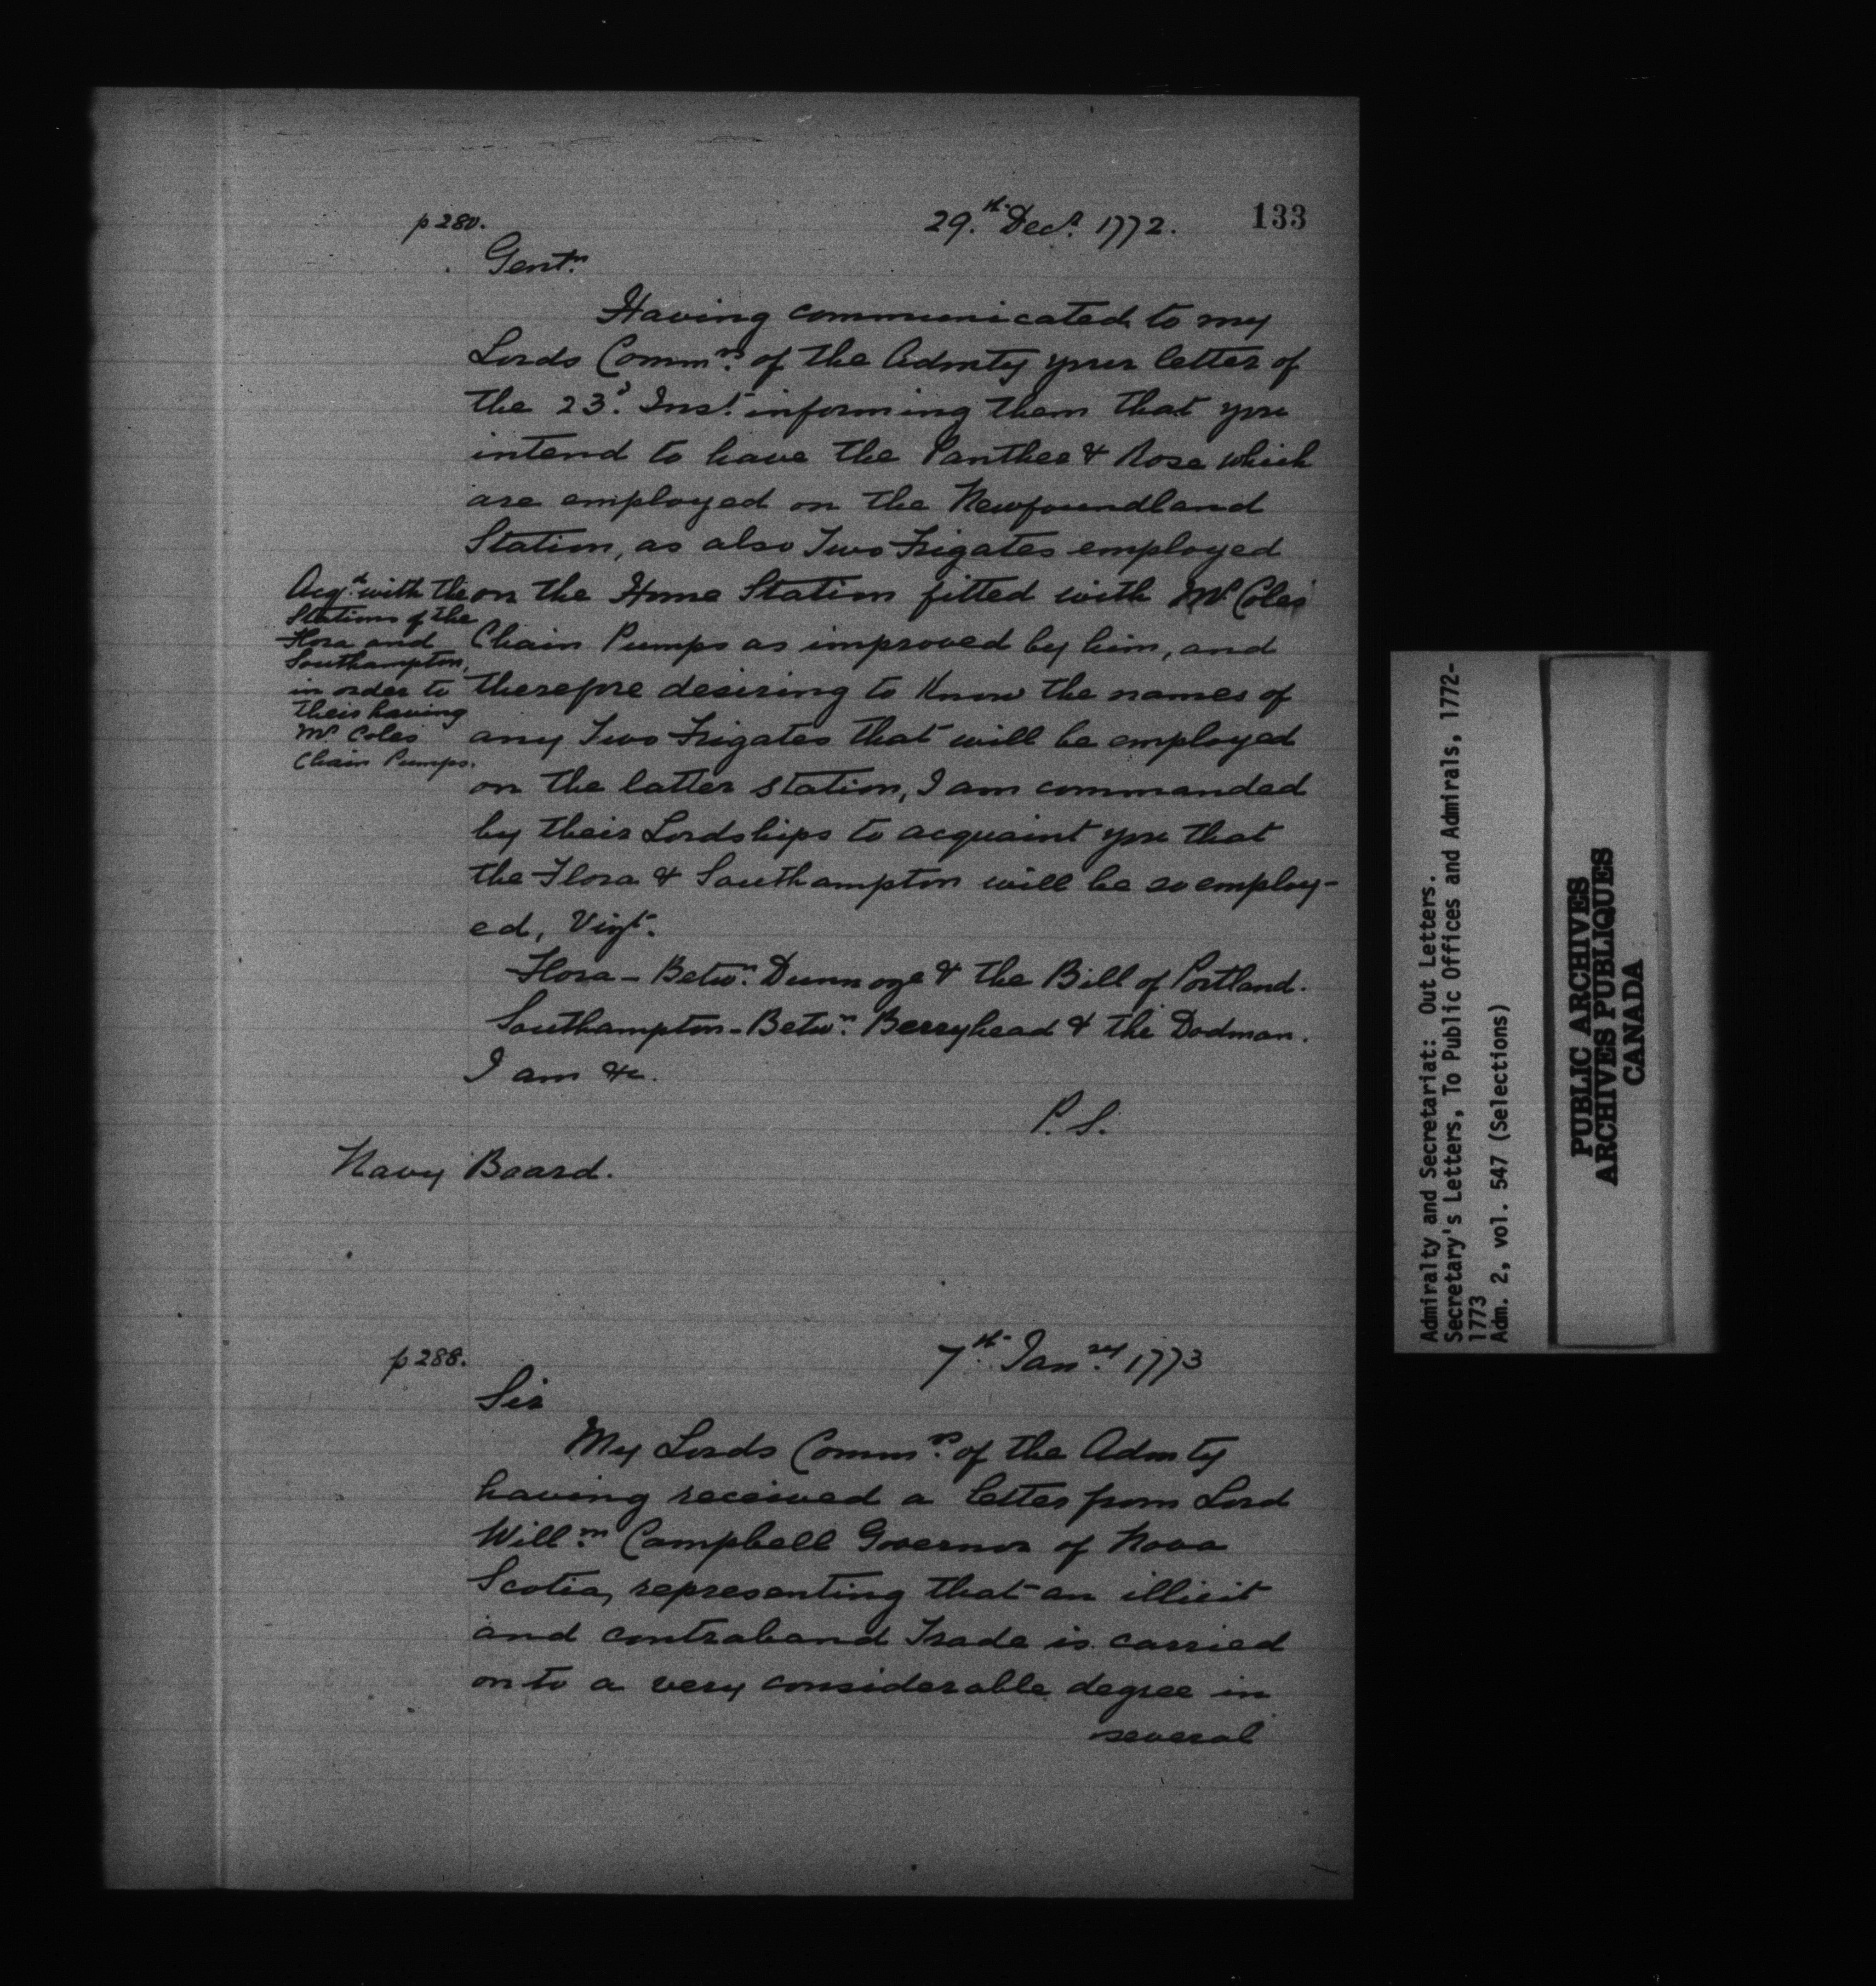 133
p 280.
29.th Decr. 1772.
Gentn.
Having communicated to my
Lords Commrs. of the Admty your letter of
the 23d. Inst. informing them that you
intend to have the Panther & Rose which
are employed on the Newfoundland
Station, as also Two Frigates employed
on the Home Station fitted with Mr Coles'
Chain Pumps as improved by him, and
therefore desiring to Know the names of
any Two Frigates that will be employed
on the latter station, I am commanded
by their Lordships to acquaint you that
the Flora & Southampton will be so employ-
ed, Vizt.
Flora - Betwn. Dunnoze & the Bill of Portland.
Southampton - Betwn. Berryhead & the Dodman.
I am &c.
P. S.
Navy Board.
Acqt. with the
Stations of the
Flora and
Southampton,
in order to
their having
Mr Coles
Chain Pumps.
p 288.
7th. Janry. 1773
Sir
My Lords Commrs. of the Admty
having received a letter from Lord
Willm. Campbell Governor of Nova
Scotia, representing that an illicit
and contraband Trade is carried
on to a very considerable degree in
several
Admiralty and Secretariat: Out Letters.
Secretary's Letters, To Public Offices and Admirals, 1772-
1773
Adm. 2, vol. 547 (Selections)
PUBLIC ARCHIVES
ARCHIVES PUBLIQUES
CANADA